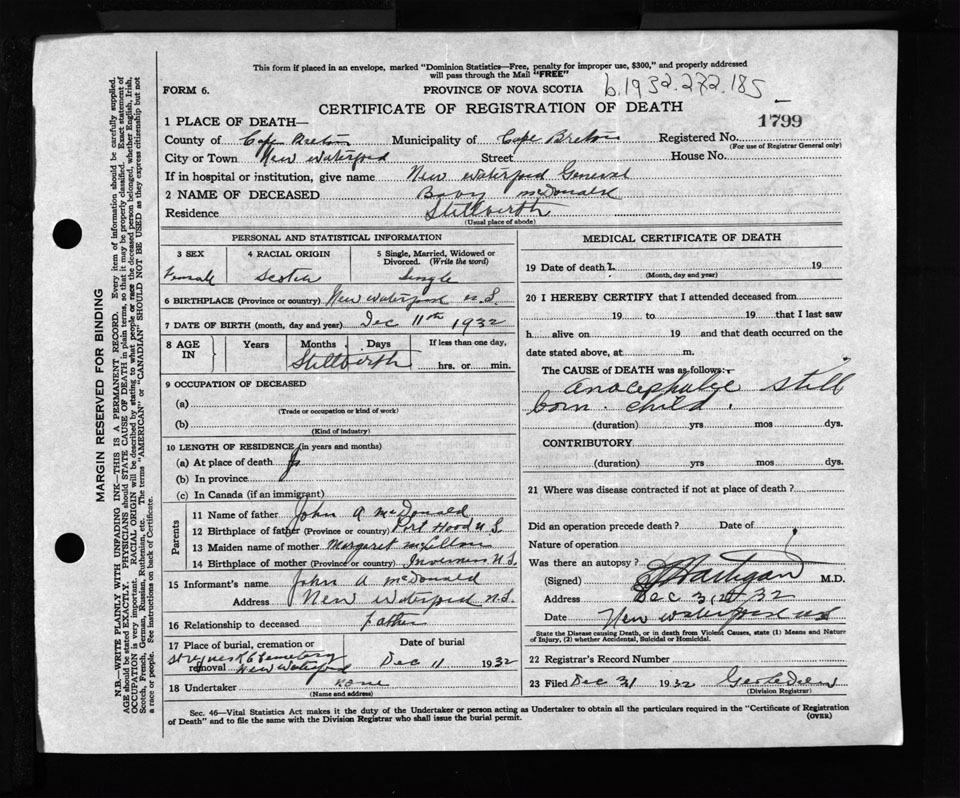 This form if placed in an envelope, marked "Dominion Statistics—Free, penalty for improper use, $300," and properly addressed
will pass through the Mail "FREE"
FORM 6.
PROVINCE OF NOVA SCOTIA
b.1932.272.185
CERTIFICATE OF REGISTRATION OF DEATH
1799
1 PLACE OF DEATH—
County of Cape Breton Municipality of Cape Breton Registered No.
(For use of Registrar General only)
City or Town New Waterford Street House No.
If in hospital or institution, give name New Waterford General
2 NAME OF DECEASED Baby McDonald
Residence Stillbirth
(Usual place of abode)
PERSONAL AND STATISTICAL INFORMATION
3 SEX
4 RACIAL ORIGIN
5 Single, Married, Widowed or Divorced. (Write the word)
Female Scotch Single
6 BIRTHPLACE (Province or country) New Waterford N.S.
7 DATE OF BIRTH (month, day and year) Dec 11th 1932
8 AGE IN
Years Months Days If less than one day,
Stillbirth hrs. or min.
9 OCCUPATION OF DECEASED
(a)
(Trade or occupation or kind of work)
(b)
(Kind of industry)
10 LENGTH OF RESIDENCE (in years and months)
(a) At place of death
(b) In province
(c) In Canada (if an immigrant)
Parents
11 Name of father John A McDonald
12 Birthplace of father (Province or country) Port Hood N.S.
13 Maiden name of mother Margaret McLellan
14 Birthplace of mother (Province or country) Inverness N.S.
15 Informant's name John A. McDonald
Address New Waterford N.S.
16 Relationship to deceased father
17 Place of burial, cremation or removal
Date of burial
St Agnes R C Cemetery
New Waterford Dec 11 1932
18 Undertaker none
(Name and address)
MEDICAL CERTIFICATE OF DEATH
19 Date of death 19
(Month, day and year)
20 I HEREBY CERTIFY that I attended deceased from
19 to 19 that I last saw
h alive on 19 and that death occurred on the
date stated above, at m.
The CAUSE of DEATH was as follows:
still
born child.
(duration) yrs mos dys.
CONTRIBUTORY
(duration) yrs mos dys.
21 Where was disease contracted if not at place of death?
Did an operation precede death? Date of
Nature of operation
Was there an autopsy?
(Signed) Hartigan M.D.
Address Dec 31st 32
Date New Waterford N.S.
State the Disease causing Death, or in death from Violent Causes, state (1) Means and Nature of Injury, (2) whether Accidental, Suicidal or Homicidal.
22 Registrar's Record Number
23 Filed Dec 31 1932
(Division Registrar)
Sec. 46—Vital Statistics Act makes it duty of the Undertaker or Person acting as Undertaker to obtain all the particulars required in the "Certificate of Registration
of Death" and to file the same with the Division Registrar who shall issue the burial permit.
(OVER)
MARGIN RESERVED FOR BINDING
N.B.—WRITE PLAINLY WITH UNFADING INK—THIS IS A PERMANENT RECORD. Every item of information should be carefully supplied.
AGE should be stated EXACTLY. PHYSICIANS should STATE CAUSE OF DEATH in plain terms, so that it may be properly classified. Exact statement of
OCCUPATION is very important. RACIAL ORIGIN will be described by stating to what people or race the deceased person belonged, whether English, Irish,
Scotch, French, German, Russian, Ruthenian, etc. The terms "AMERICAN" or "CANADIAN" SHOULD NOT BE USED as they express citizenship but not
a race or people. See instructions on back of Certificate.